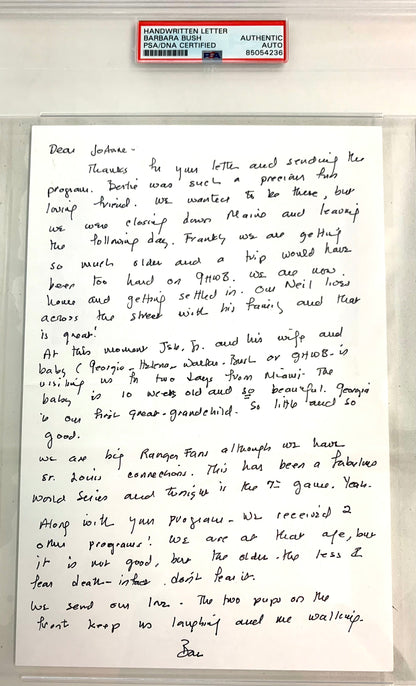 HANDWRITTEN LETTER
BARBARA BUSH AUTHENTIC
PSA/DNA CERTIFIED AUTO
PSA 85054236
Dear JoAnne -
Thanks for your letter and sending the
program. Bertie was such a precious fun
loving friend. We wanted to be there, but
we were closing down Maine and leaving
the following day. Frankly we are getting
so much older and a trip would have
been too hard on GHWB. We are now
home and getting settled in. Our Neil lives
across the street with his family and that
is great!
At this moment Jeb. Jr. and his wife and
baby (Georgia - Helena - Walker. Bush or GHWB - is
visiting us for two days from Miami. The
baby is 10 weeks old and so beautiful. Georgia
is our first great-grandchild. So little and so
good.
We are big Ranger Fans although we have
St. Louis connections. This has been a fabulous
World Series and tonight is the 7th game. Yeah.
Along with your program - we received 2
other programs! We are at that age, but
it is not good, but the older - the less I
fear death - infact. don't fear it.
We send our love. The two pups on the
front keep us laughing and me walking.
Bar